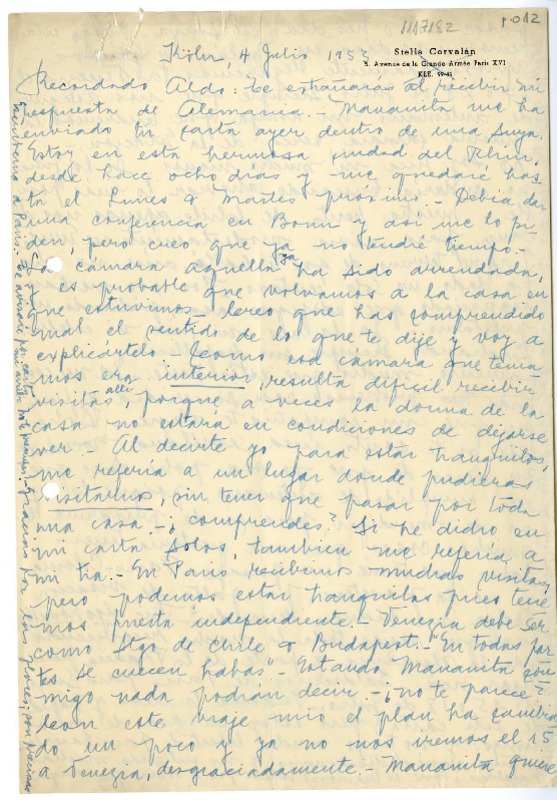 1117182
p.012
Stella Corvalán
3, Avenue de la Grande Armée Paris XVI
KLE. 59-45
Köln, 4 Julio 1953
Recordado Aldo: Te extrañaras al recibir mi
respuesta de Alemania.- Mananita me ha
enviado tu carta ayer dentro de una suya.
Estoy en esta hermosa ciudad del Rhin,
desde hace ocho dias y me quedaré has
ta el Lunes o Martes proximo.- Debia dar
una conferencia en Bonn y asi me lo pi-
den, pero creo que ya no tendré tiempo.-
La cámara aquella ya ha sido arrendada,
y es probable que volvamos a la casa en
que estuvimos.- Creo que has comprendido
mal el sentido de lo que te dije y voy a
explicártelo.- Como esa cámara que tenia
mos era interior, resulta dificil recibir
visitas alli, porque a veces la donna de la
casa no estará en condiciones de dejarse
ver.- Al decirte yo para estar tranquilos,
me referia a un lugar donde pudieras
visitarnos, sin tener que pasar por toda
una casa.- ¿comprendes? Si he dicho en
mi carta solos, tambien me referia a
mi tia.- En Paris recibimos muchas visitas,
pero podemos estar tranquilas pues tene
mos puerta independiente.- Venezia debe ser
como Stgo de Chile o Budapest.- "En todas par
tes se cuecen habas"- Estando Mananita con
migo nada podrán decir.- ¡no te parece?
Con este viaje mio el plan ha cambia
do un poco y ya no nos iremos el 15
a Venezia, desgraciadamente.- Mananita quiere
a Paris. Te avisaré por carta mi arribo. No te preocupes. Gracias por las flores; son preciosas